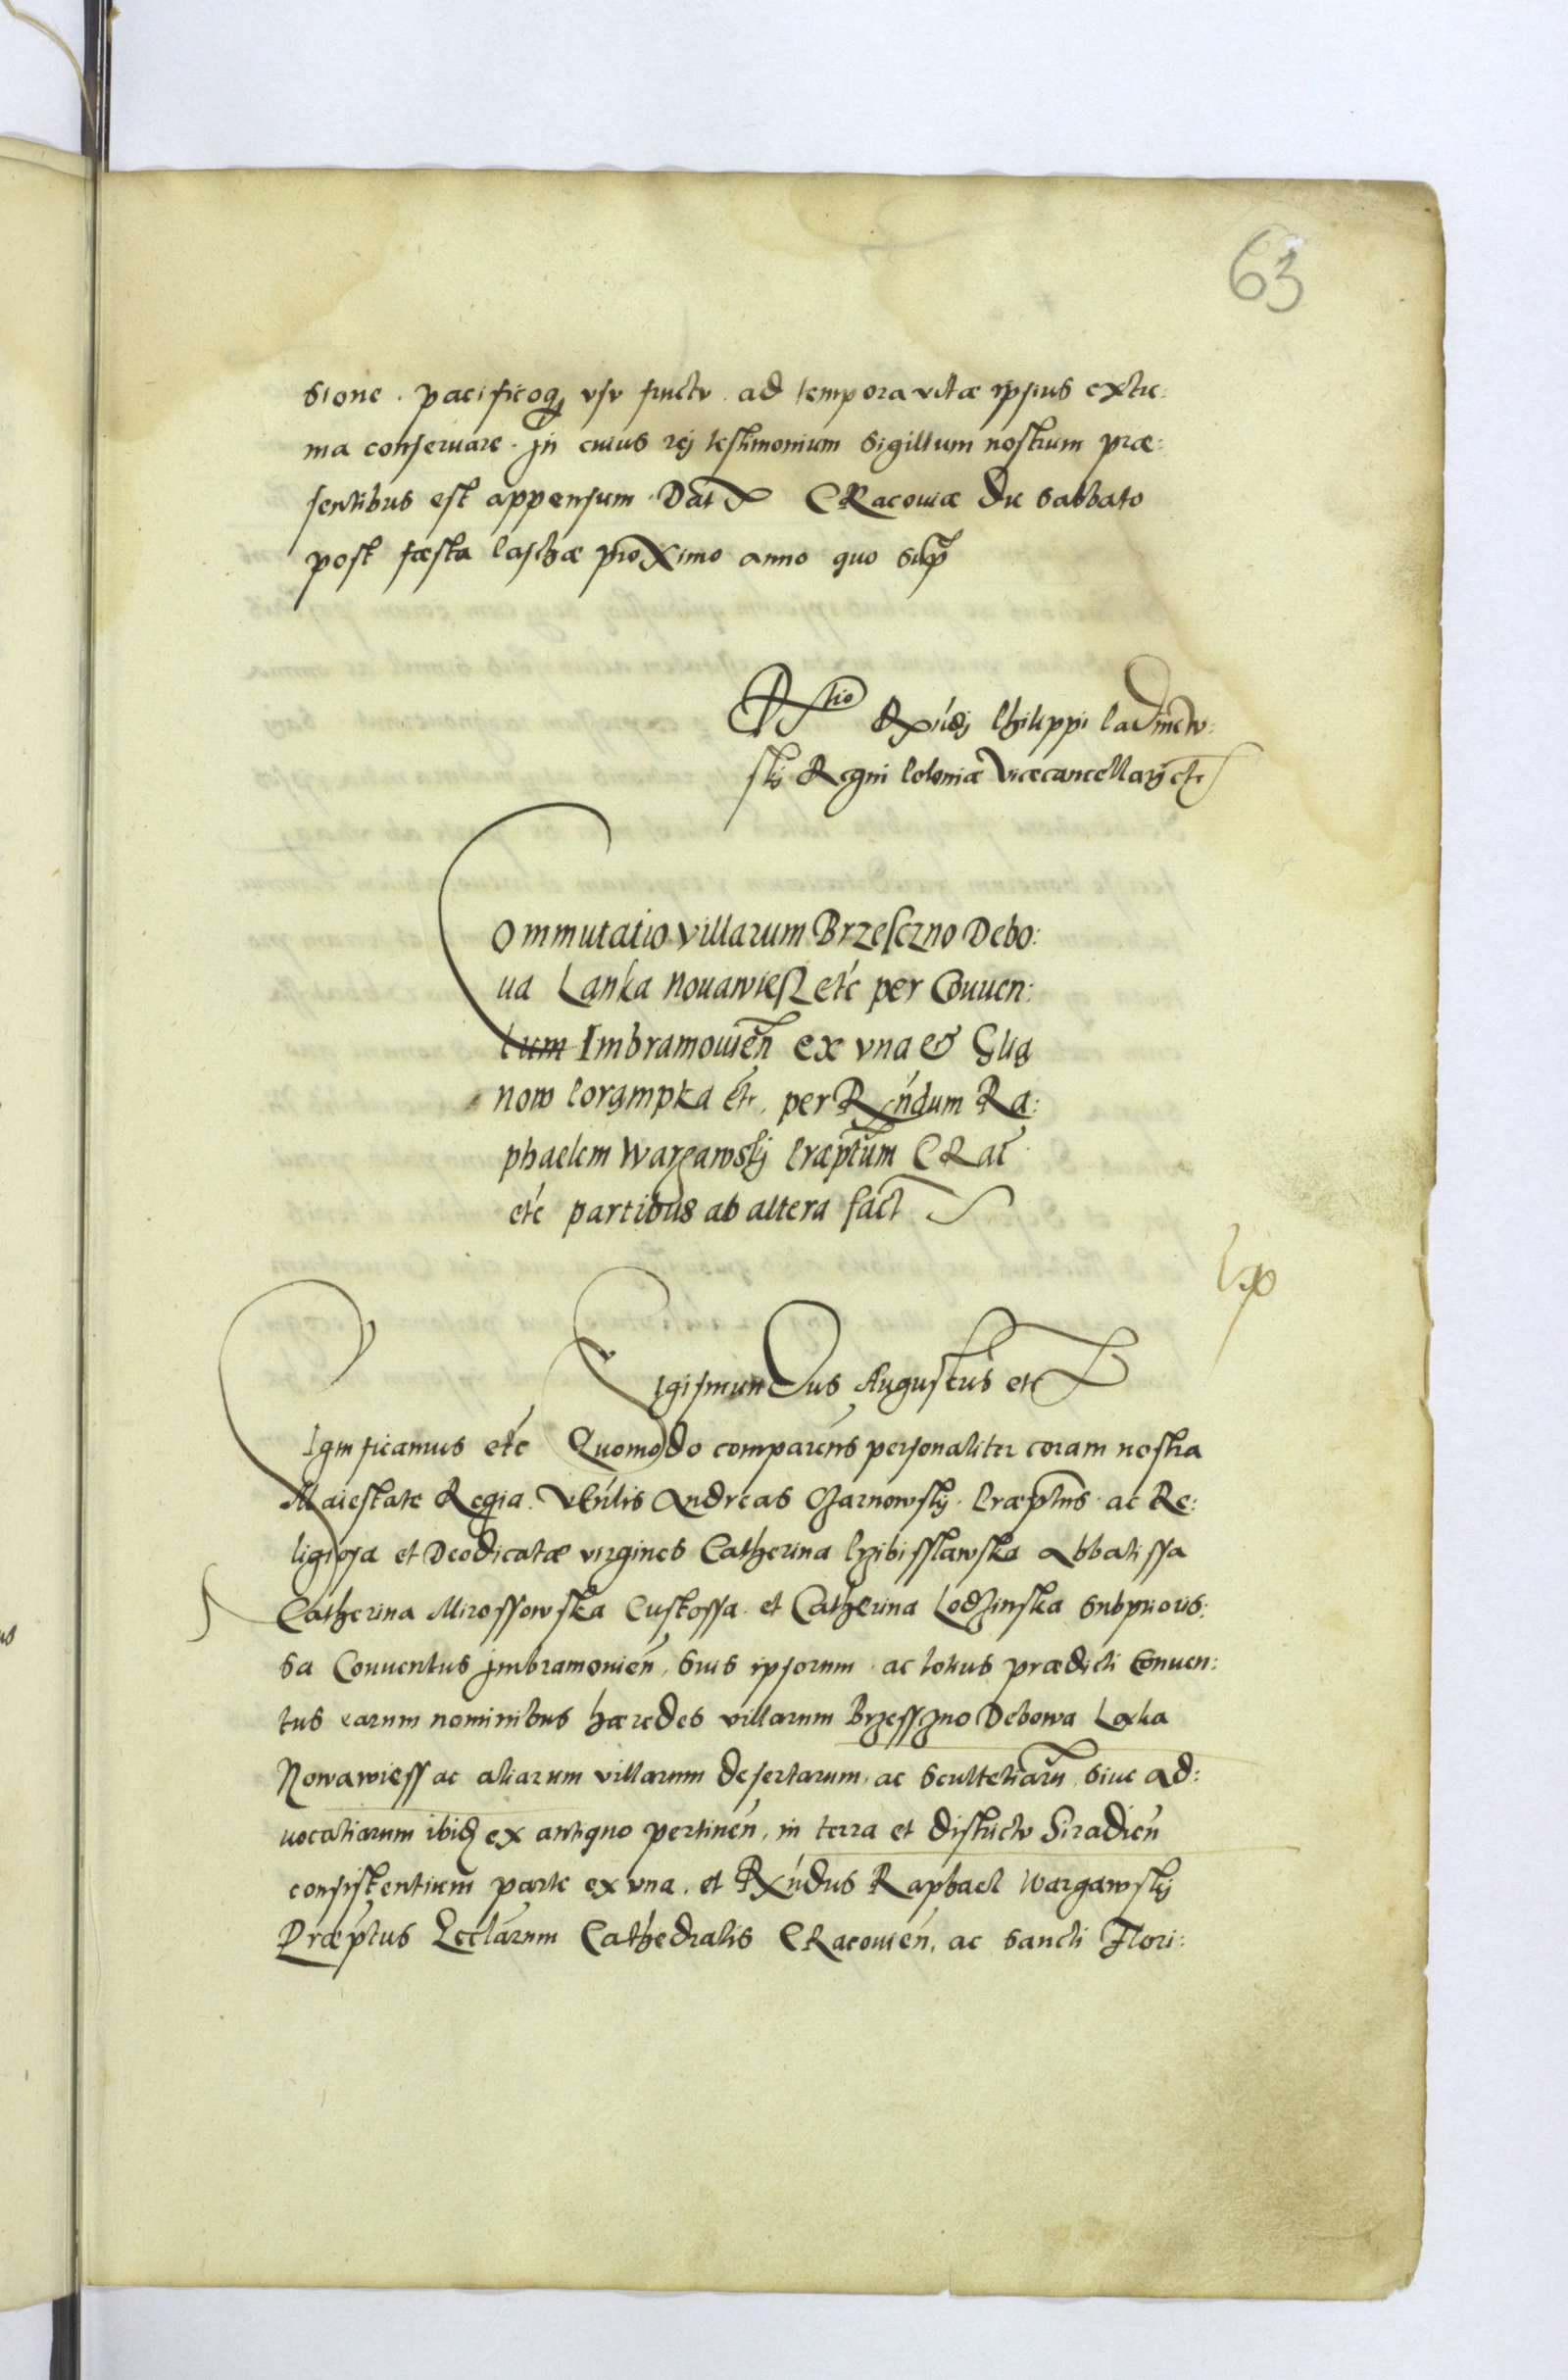 63
sione. pacificoq; vsv fructv. ad tempora vitæ ipsius extre:
ma conseruare. In cuius rej testimonium Sigillum nostrum præ:
sentibus est appensum. Dat CRacouiæ die Sabbato
post fæsta Paschæ proXimo anno quo Sup
Rtio RXndj Philippi Padniew:
skj Regni Poloniæ Vicecancellarij etc
Commutatio villarum Brzesczno Debo:
ua Lanka Nouawiess etc per Conuen:
tum Imbramouien ex vna & Glia
now Porampka etc. per RXndum Ra:
phaelem Wargawskj Præptum CRac
etc partibus ab altera fact
Exp
SigismunDus Augustus etc
Significamus etc Quomodo comparens personaliter coram nostra
Maiestate Regia. VEnlis Andreas Czarnowskj. Præptus. ac Re:
ligiosa et Deodicatæ virgines Catherina Pzibisslawska Abbatissa
Catherina Mirossowska Custossa. et Catherina Lodzinska Subprioris:
sa Conuentus Imbramouien, Suis ipsorum. ac totius prædicti Conuen:
tus earum nominibus hæredes villarum Brzessczno Debowa Laka
Nowawiess ac aliarum villarum desertarum, ac Scultetiaru, Siue Ad:
uocatiarum ibid ex antiquo pertinen, in terra et districtv Siradien
consistentium parte ex vna. et RXndus Raphael Wargawskj
Præptus Ecclarum Cathedralis CRacouien, ac Sancti Flori: